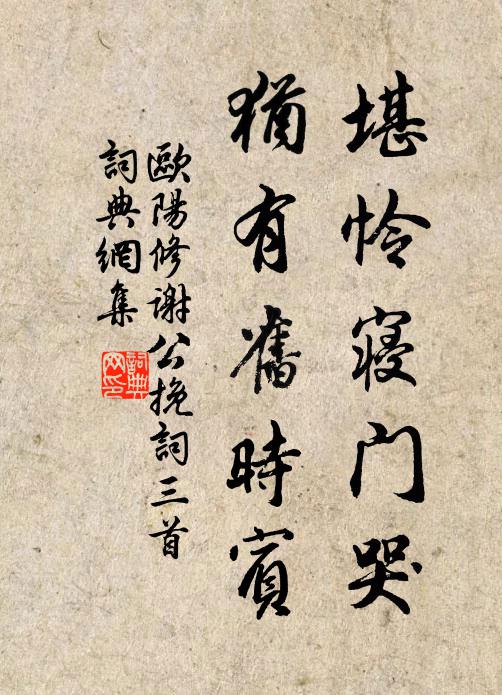 堪怜寝门哭
猶有舊時賓
歐陽修谢公挽詞三首
詞典網集
詞典网印